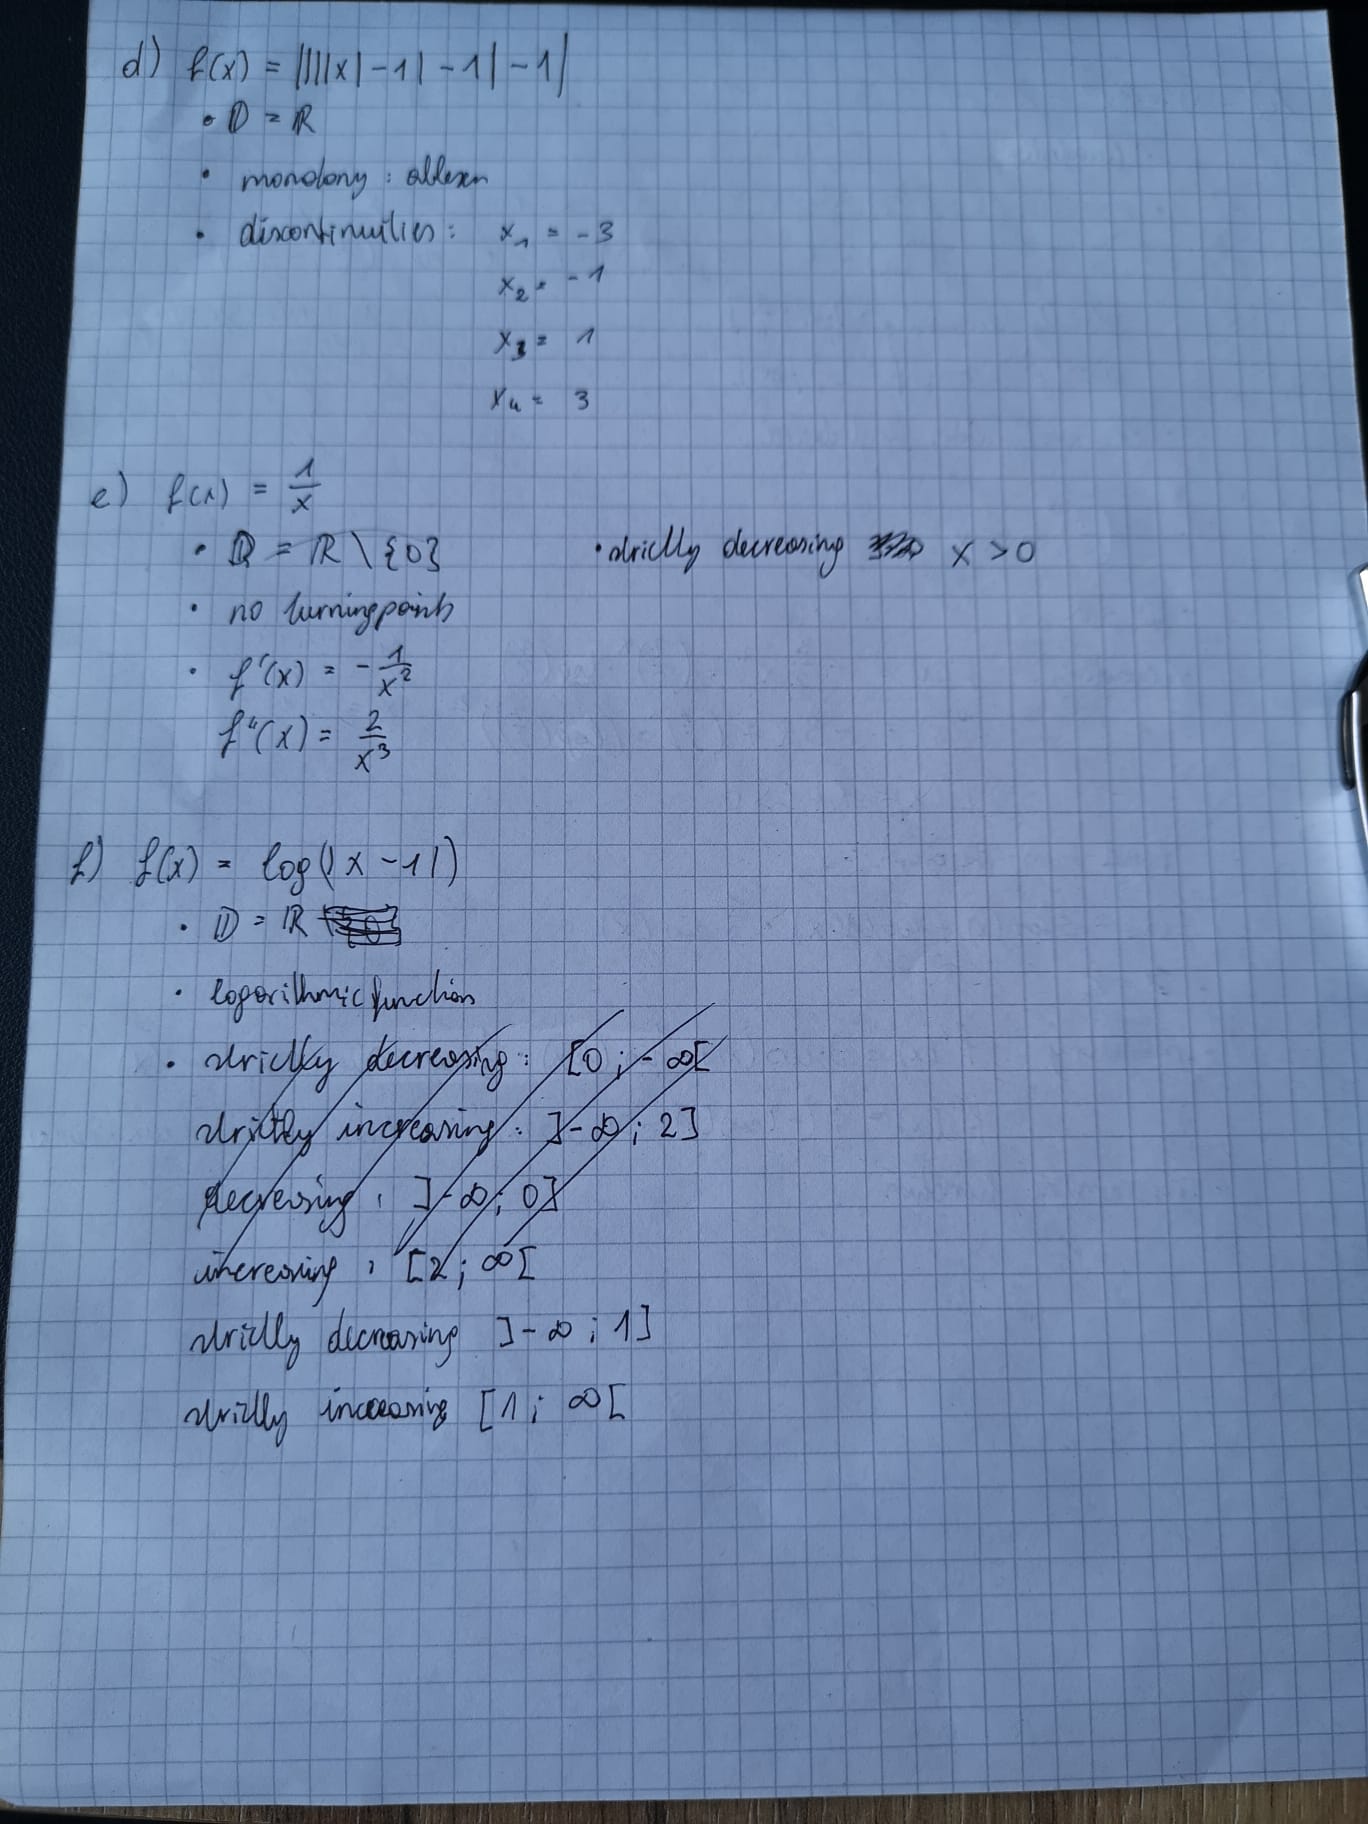 d) f(x) = ||||x| - 1| - 1| - 1|
• D = ℝ
• monotony : ablesen
• discontinuities : x₁ = -3
x₂ = -1
x₃ = 1
x₄ = 3
e) f(x) = 1/x
• D = ℝ \ {0} • strictly decreasing x > 0
• no turningpoints
• f'(x) = - 1/x²
f''(x) = 2/x³
f) f(x) = log(|x - 1|)
• D = ℝ
• logarithmic function
• strictly decreasing : [0 ; -∞[
strictly increasing : ]-∞ ; 2]
decreasing : ]-∞ ; 0]
increasing : [2 ; ∞[
strictly decreasing ]-∞ ; 1]
strictly increasing [1 ; ∞[